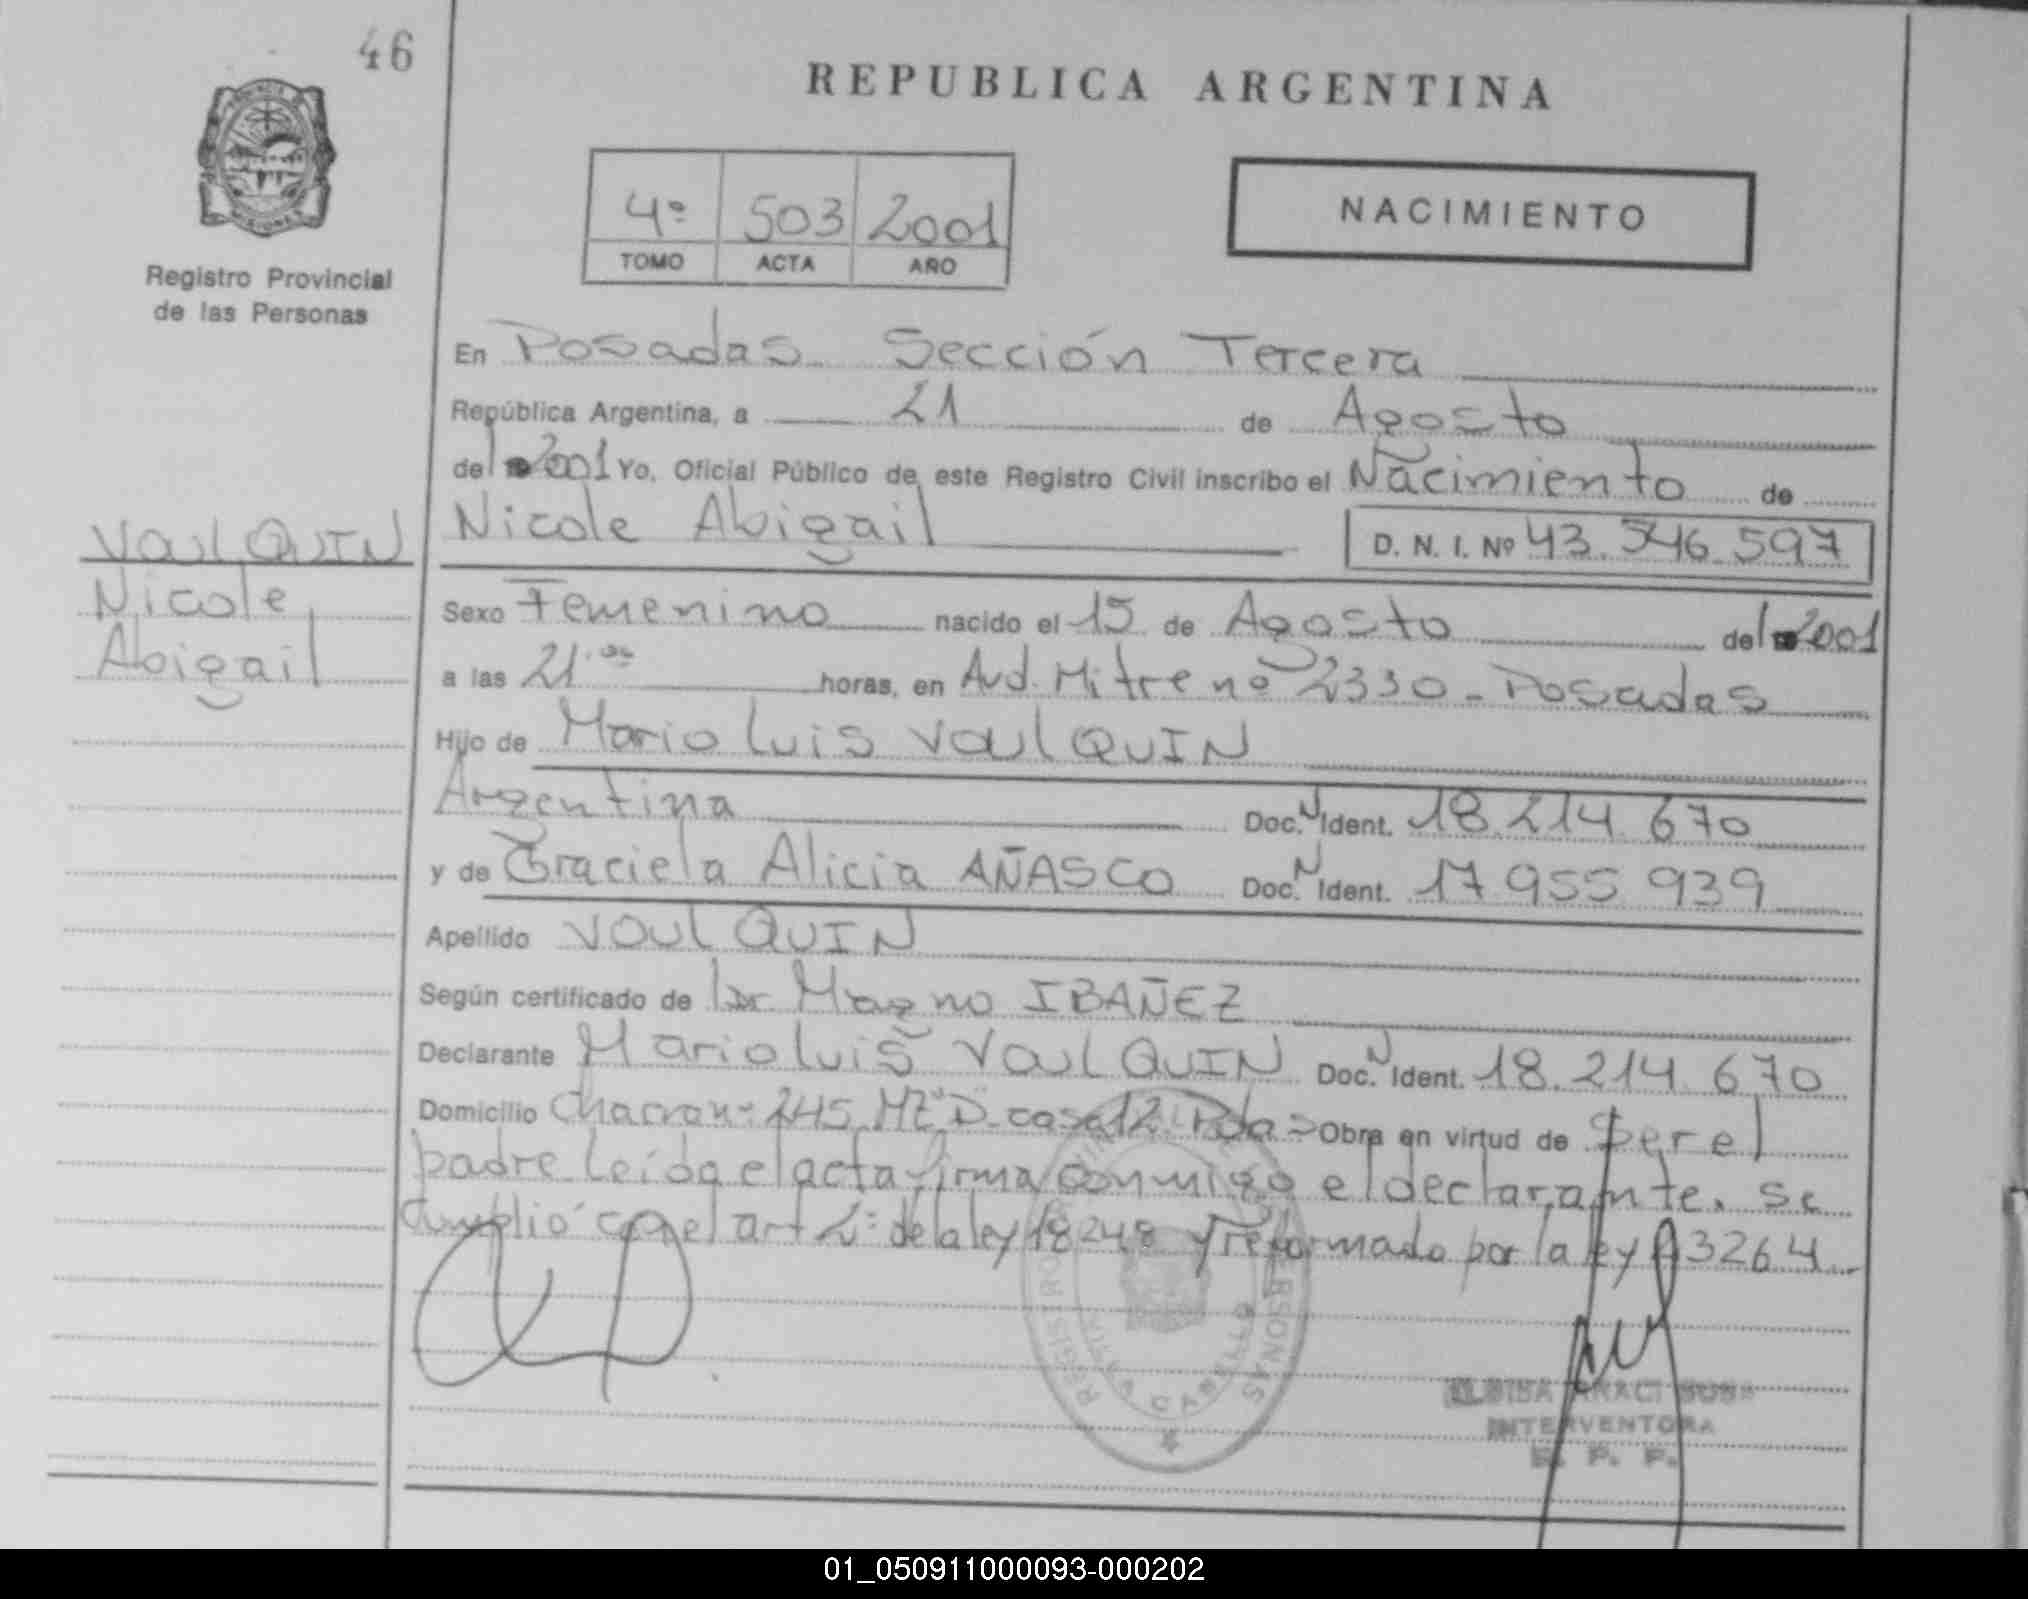 46
REPUBLICA ARGENTINA
4º 503 2001
TOMO ACTA AÑO
NACIMIENTO
Registro Provincial
de las Personas
En Posadas Sección Tercera
República Argentina, a 21 de Agosto
del 2001 Yo, Oficial Público de este Registro Civil inscribo el Nacimiento de
Nicole Abigail D. N. I. Nº 43.546.597
VAULQUIN
Nicole
Abigail
Sexo Femenino nacido el 15 de Agosto del 2001
a las 21.00 horas, en Avd. Mitre nº 2330 - Posadas
Hijo de Mario Luis VAULQUIN
Argentina Doc. N Ident. 18.214.670
y de Graciela Alicia AÑASCO Doc. N Ident. 17.955.939
Apellido VAULQUIN
Según certificado de Dr. Magno IBAÑEZ
Declarante Mario Luis VAULQUIN Doc. N Ident. 18.214.670
Domicilio Chacra nº 245 MZ "D" casa 12 Pdas Obra en virtud de Ser el
padre. Leída el acta firma conmigo el declarante. Se
cumplió con el art 2º de la ley 18248 y reformado por la ley 23264
REGISTRO PERSONAS
CABECERA
INTERVENTORA
R. P. P.
01_050911000093-000202